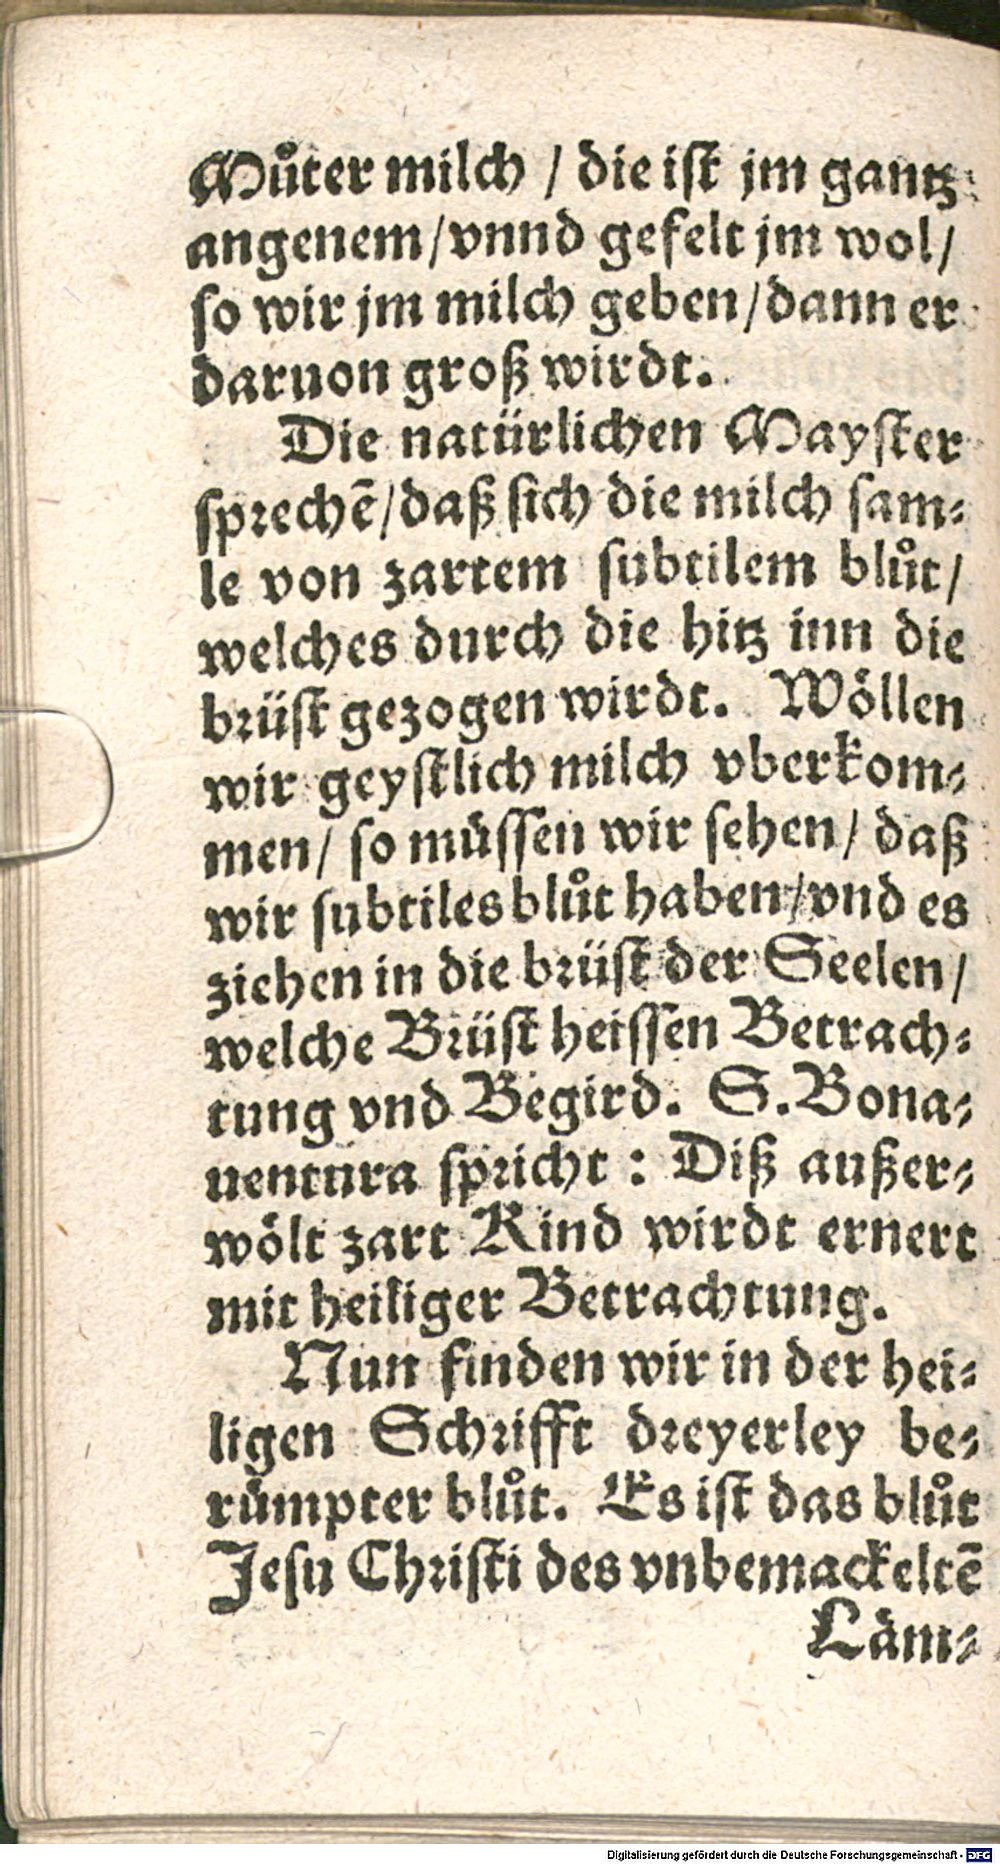 Můter milch / die ist jm gantz
angenem / vnnd gefelt jm wol /
so wir jm milch geben / dann er
daruon groß wirdt.
Die natürlichen Mayster
sprechẽ / daß sich die milch sam⸗
le von zartem subtilem blůt /
welches durch die hitz inn die
brüst gezogen wirdt. Wöllen
wir geystlich milch vberkom⸗
men / so müssen wir sehen / daß
wir subtiles blůt haben / vnd es
ziehen in die brüst der Seelen /
welche Brüst heissen Betrach⸗
tung vnd Begird. S. Bona⸗
uentura spricht : Diß außer⸗
wölt zart Kind wirdt ernert
mit heiliger Betrachtung.
Nun finden wir in der hei⸗
ligen Schrifft dreyerley be⸗
rümpter blůt. Es ist das blůt
Jesu Christi des vnbemackeltẽ
Läm⸗
Digitalisierung gefördert durch die Deutsche Forschungsgemeinschaft - DFG